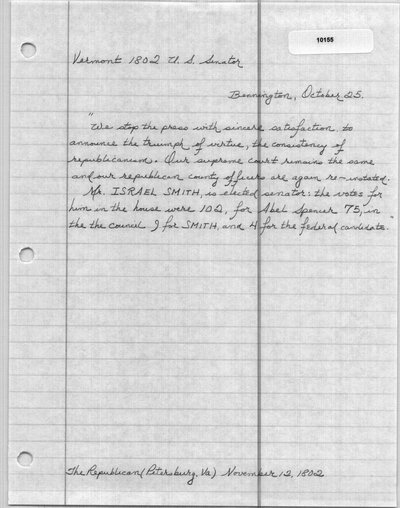 10155
Vermont 1802 U. S. Senator
Bennington, October 25.
"We stop the press with sincere satisfaction, to
announce the triumph of virtue, the consistency of
republicanism. Our supreme court remains the same
and our republican county officers are again re-instated.
Mr. ISRAEL SMITH, is elected senator: the votes for
him in the house were 102, for Abel Spencer 75, in
the the council 9 for SMITH, and 4 for the federal candidate."
The Republican (Petersburg, Va) November 12, 1802